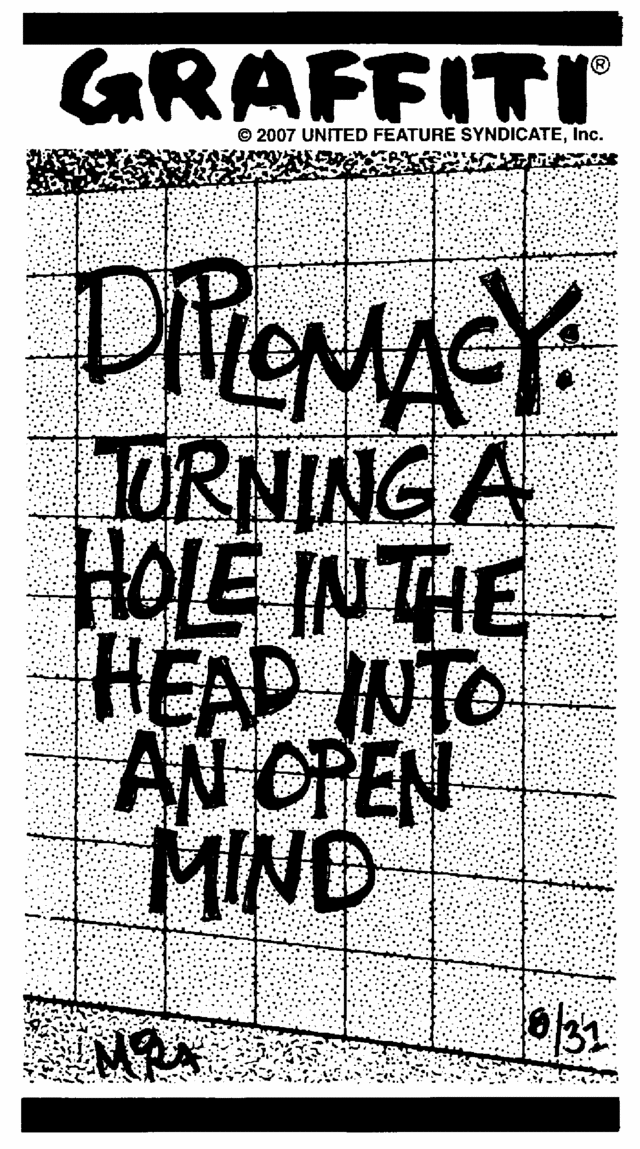 GRAFFITI®
© 2007 UNITED FEATURE SYNDICATE, Inc.
DIPLOMACY:
TURNING A
HOLE IN THE
HEAD INTO
AN OPEN
MIND
8/31